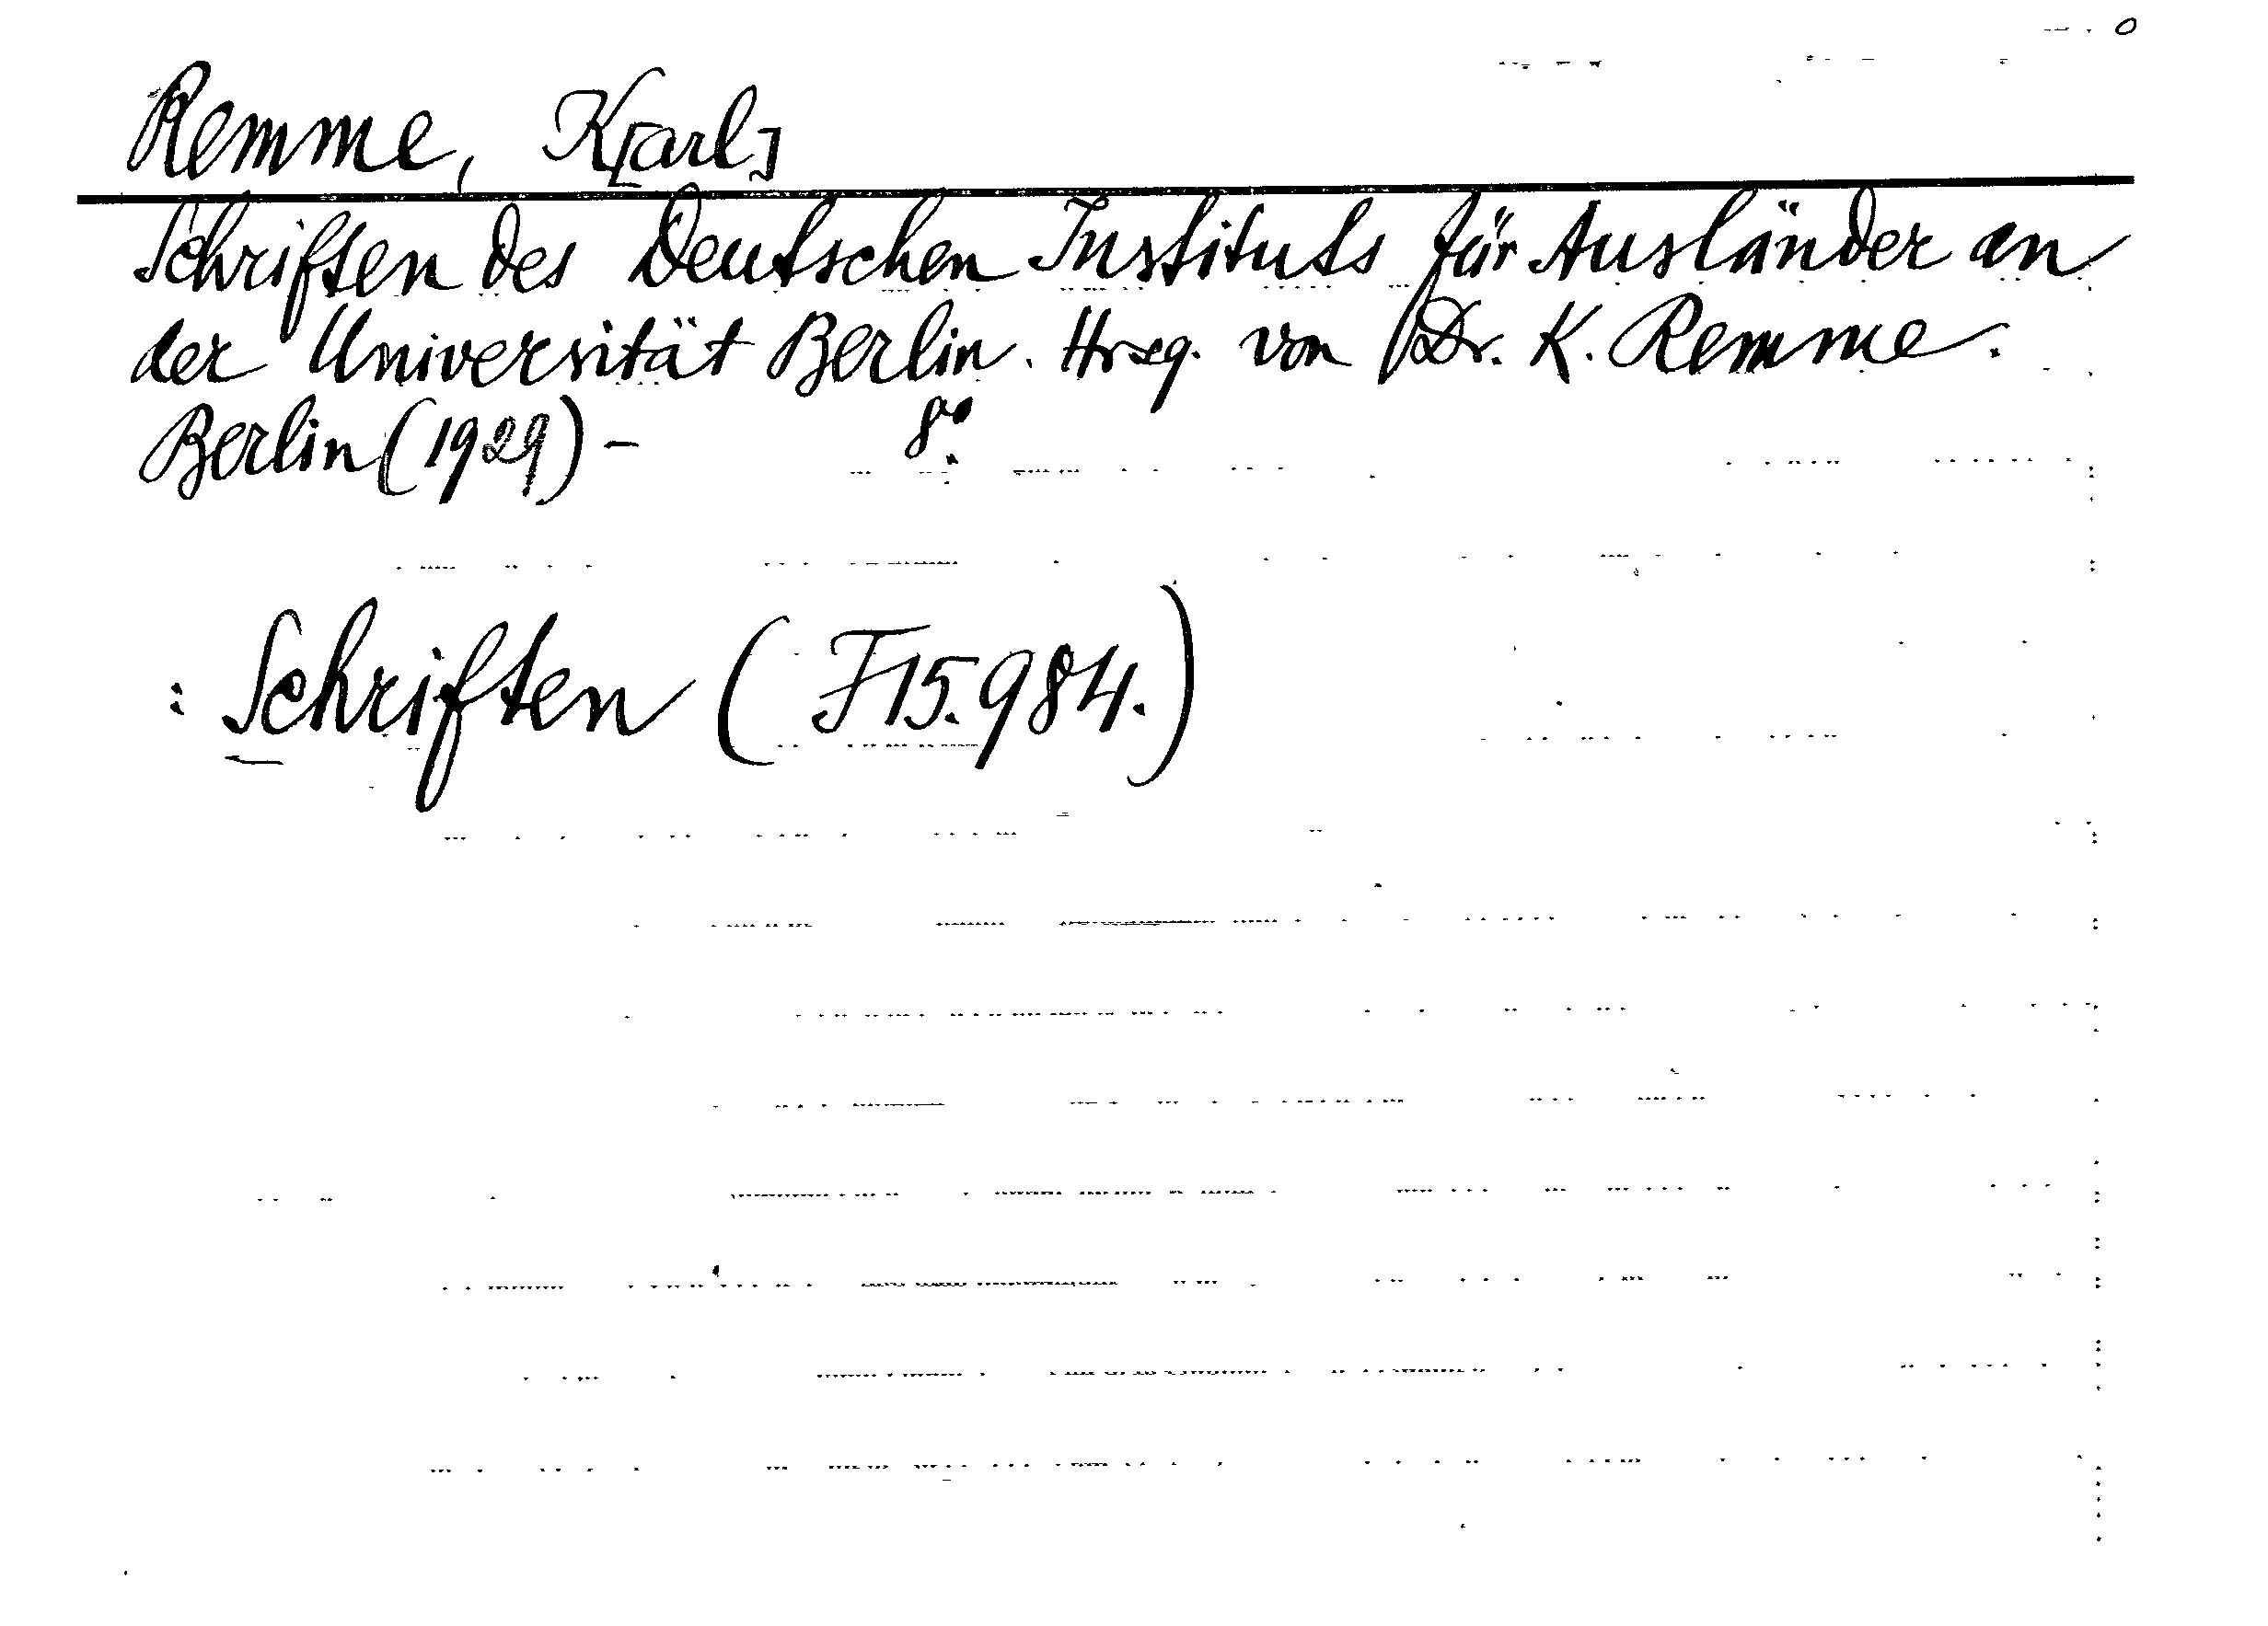 Remme, K[arl]
Schriften des Deutschen Instituts für Ausländer an
der Universität Berlin. Hrsg. von Dr. K. Remme.
Berlin (1929) – 8°
: Schriften ( F 15.984.)